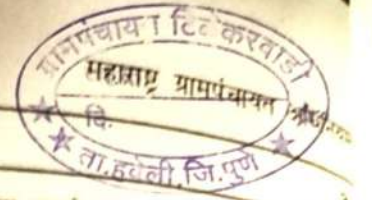 ग्रामपंचायत टिळेकरवाडी
महाराष्ट्र ग्रामपंचायत
दि.
ता.हवेली, जि.पुणे